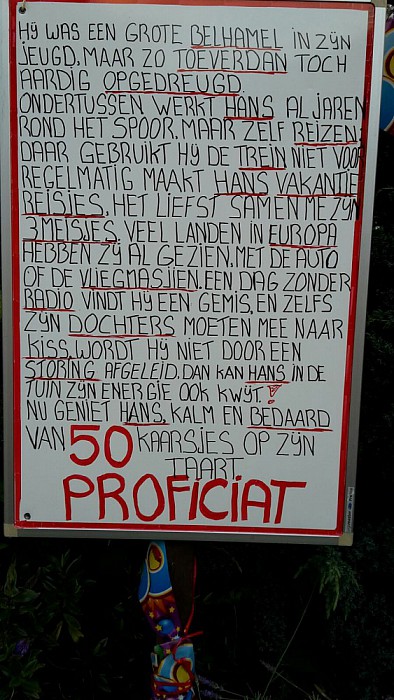 HIJ WAS EEN GROTE BELHAMEL IN ZIJN
JEUGD, MAAR ZO TOEVERDAN TOCH
AARDIG OPGEDREUGD.
ONDERTUSSEN WERKT HANS AL JAREN
ROND HET SPOOR. MAAR ZELF REIZEN,
DAAR GEBRUIKT HIJ DE TREIN NIET VOOR
REGELMATIG MAAKT HANS VAKANTIE
REISJES, HET LIEFST SAMEN ME ZIJN
3 MEISJES. VEEL LANDEN IN EUROPA
HEBBEN ZIJ AL GEZIEN. MET DE AUTO
OF DE VLIEGMASJIEN. EEN DAG ZONDER
RADIO VINDT HIJ EEN GEMIS, EN ZELFS
ZIJN DOCHTERS MOETEN MEE NAAR
KISS. WORDT HIJ NIET DOOR EEN
STORING AFGELEID. DAN KAN HANS IN DE
TUIN ZIJN ENERGIE OOK KWIJT!
NU GENIET HANS, KALM EN BEDAARD
VAN 50 KAARSJES OP ZIJN
TAART
PROFICIAT